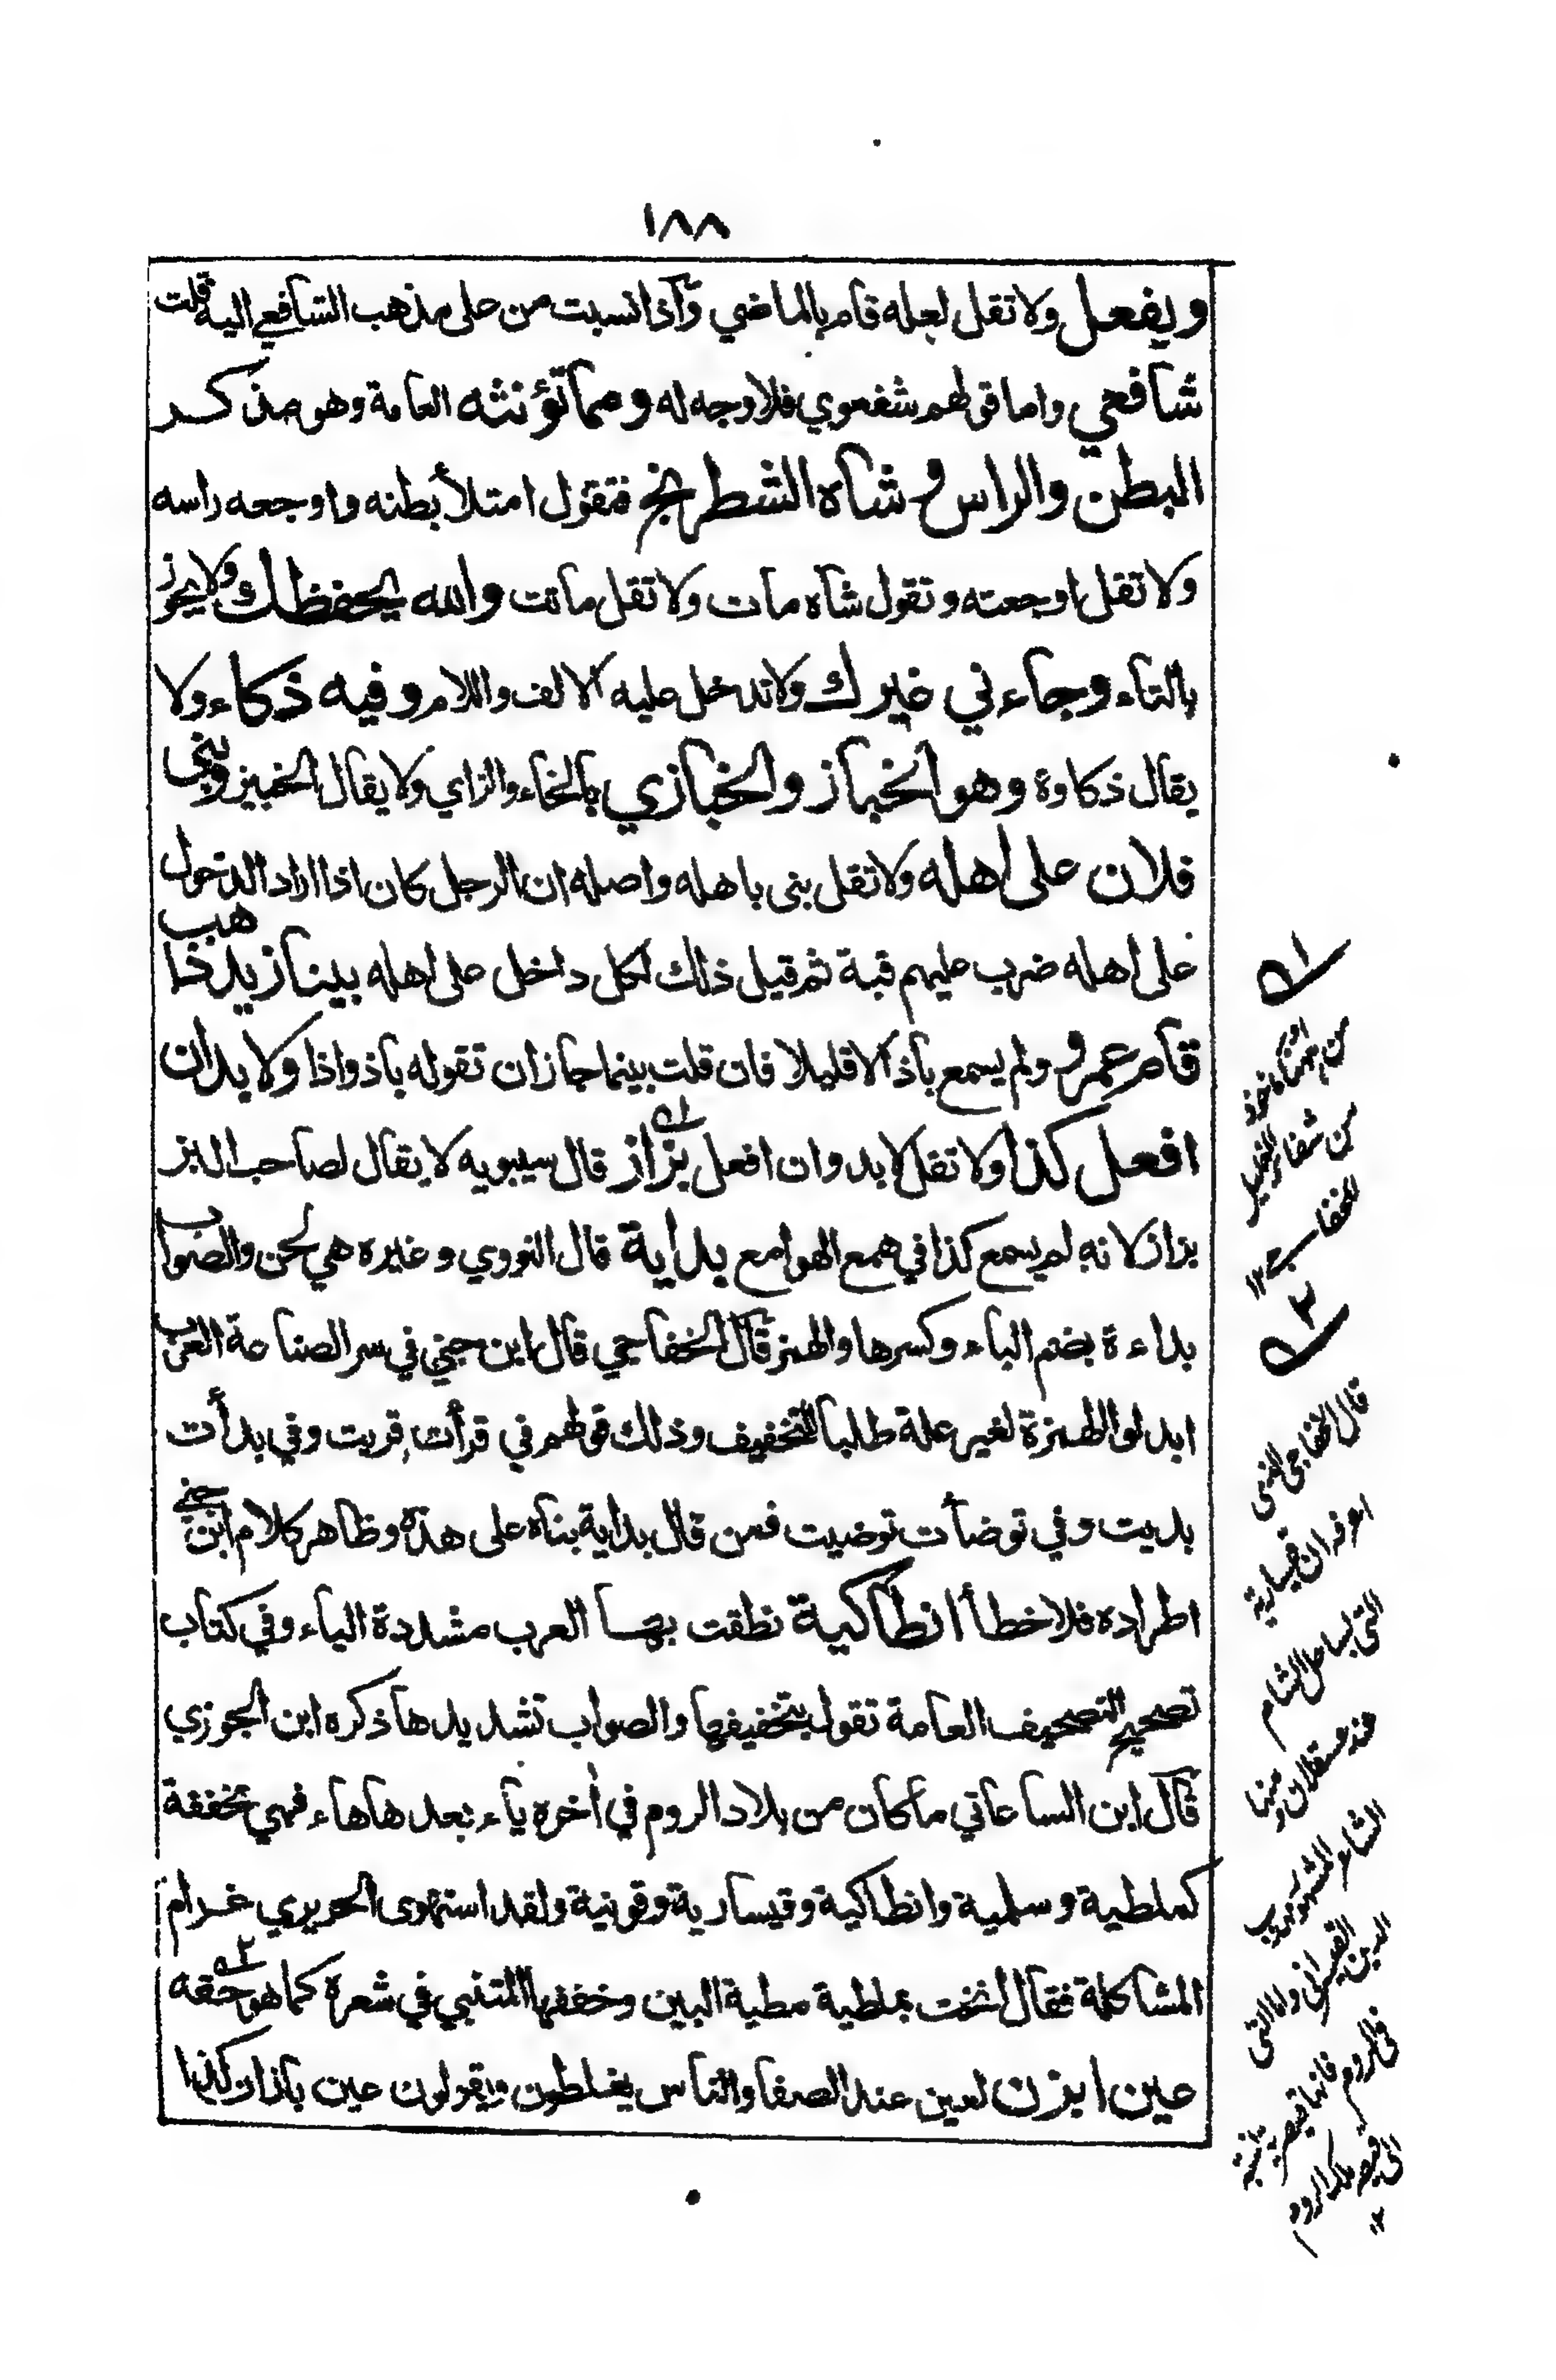 ١٨٨
ويفعل ولا تقل لعله قام بالماضي وآذا نسبت من على مذهب الشافعي اليه قلت
شافعي واما قولهم شفعوي فلا وجه له ومما تؤنثه العامة وهو مذكر
البطن والراس وشاه الشطرنج فتقول امتلأ بطنه واوجعه راسه
ولا تقل اوجعته وتقول شاه مات ولا تقل ماتت والله يحفظك ولا يجوز
بالتاء وجاءني غيرك ولا تدخل عليه الالف واللام وفيه ذكاء ولا
يقال ذكاوة وهو الخباز والخبازي بالخاء والزاي ولا يقال الخبيز وبنى
فلان على اهله ولا تقل بنى باهله واصله ان الرجل كان اذا اراد الدخول
على اهله ضرب عليهم قبة ثم قيل ذلك لكل داخل على اهله بينا زيد ذاهب
قام عمرو ولم يسمع باذ الا قليلا فان قلت بينما جاز ان تقوله باذ واذا ولا بد ان
افعل كذا ولا تقل لا بد وان افعل بزاز قال سيبويه لا يقال لصاحب البز
بزاز لانه لم يسمع كذا في همع الهوامع بداية قال النووي وغيره هي لحن والصواب
بداءة بضم الباء وكسرها والهمز قال الخفاجي قال ابن جني في سر الصناعة العرب
ابدلوا الهمزة لغير علة طلبا للتخفيف وذلك قولهم في قرأت قريت وفي بدأت
بديت وفي توضأت توضيت فمن قال بداية بناه على هذه وظاهر كلام ابن جني
اطراده فلا خطأ انطاكية نطقت بها العرب مشددة الياء وفي كتاب
تصحيح التصحيف العامة تقول بتخفيفها والصواب تشديدها ذكره ابن الجوزي
قال ابن الساعاتي ما كان من بلاد الروم في أخره ياء بعدها هاء فهي مخففة
كملطية وسلمية وانطاكية وقيسارية وقونية ولقد استهوى الحريري غرام
المشاكلة فقال انخت بملطية مطية البين وخففها المتنبي في شعره كما هو حقه
عين ابزن لعين عند الصفا والناس يغلطون ويقولون عين بازان كذا
من شفاء الغليل
للخفاجي ١٢
قال الخفاجي الذي
اعرفه ان قيسارية
التي بساحل الشام
عند عسقلان ومنها
الشاعر المشهور
الدين القيسراني واما التي
في الروم فانها قيصرية نسبة
الى قيصر ملك الروم
١٢